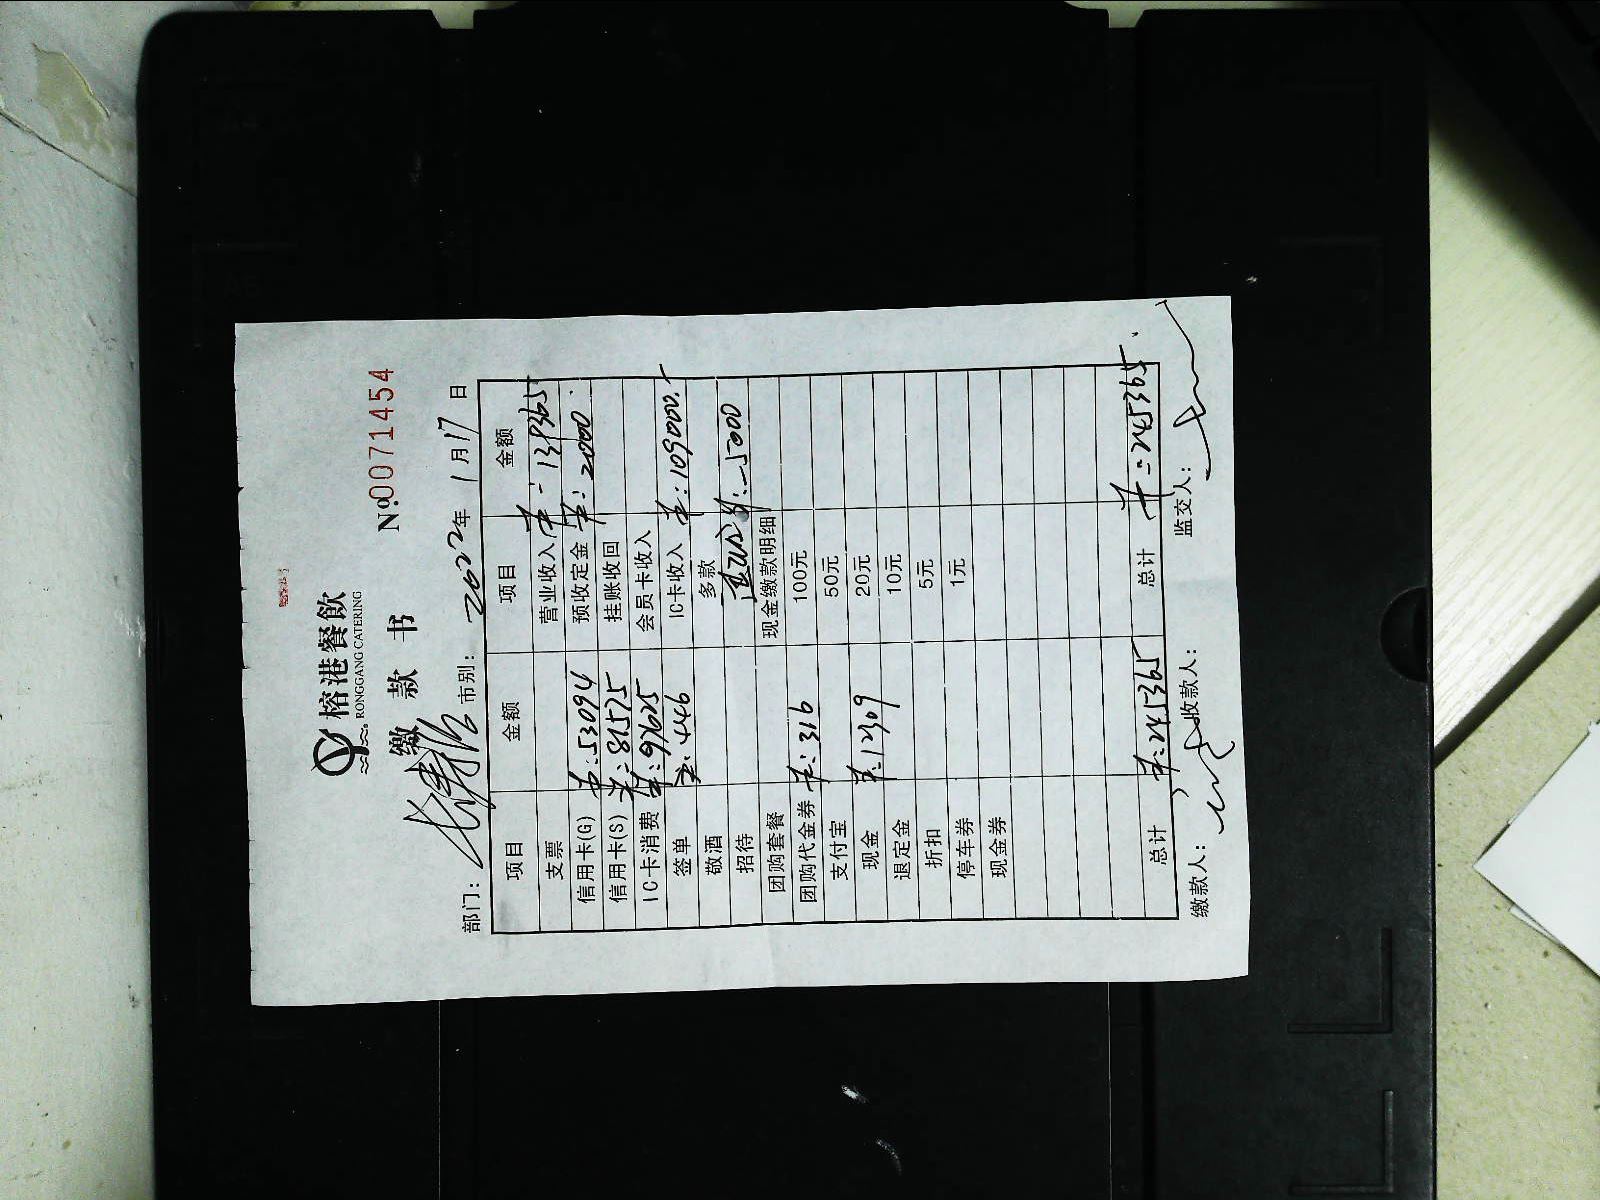 榕港餐飲
RONGGANG CATERING
缴 款 书 №0071454
部门: 市别: 2022年 1月17日
项目 金额 项目 金额
支票 营业收入 ¥:139365
信用卡(G) ¥:53094 预收定金 ¥:2000
信用卡(S) ¥:81575 挂账收回
IC卡消费 ¥:97625 会员卡收入
签单 ¥:446 IC卡收入 ¥:109000.
敬酒 多款
招待 ¥:-5000
团购套餐 现金缴款明细
团购代金券 ¥:316 100元
支付宝 50元
现金 ¥:12309 20元
退定金 10元
折扣 5元
停车券 1元
现金券
总计 ¥:245365 总计 ¥:245365
缴款人: 收款人: 监交人: